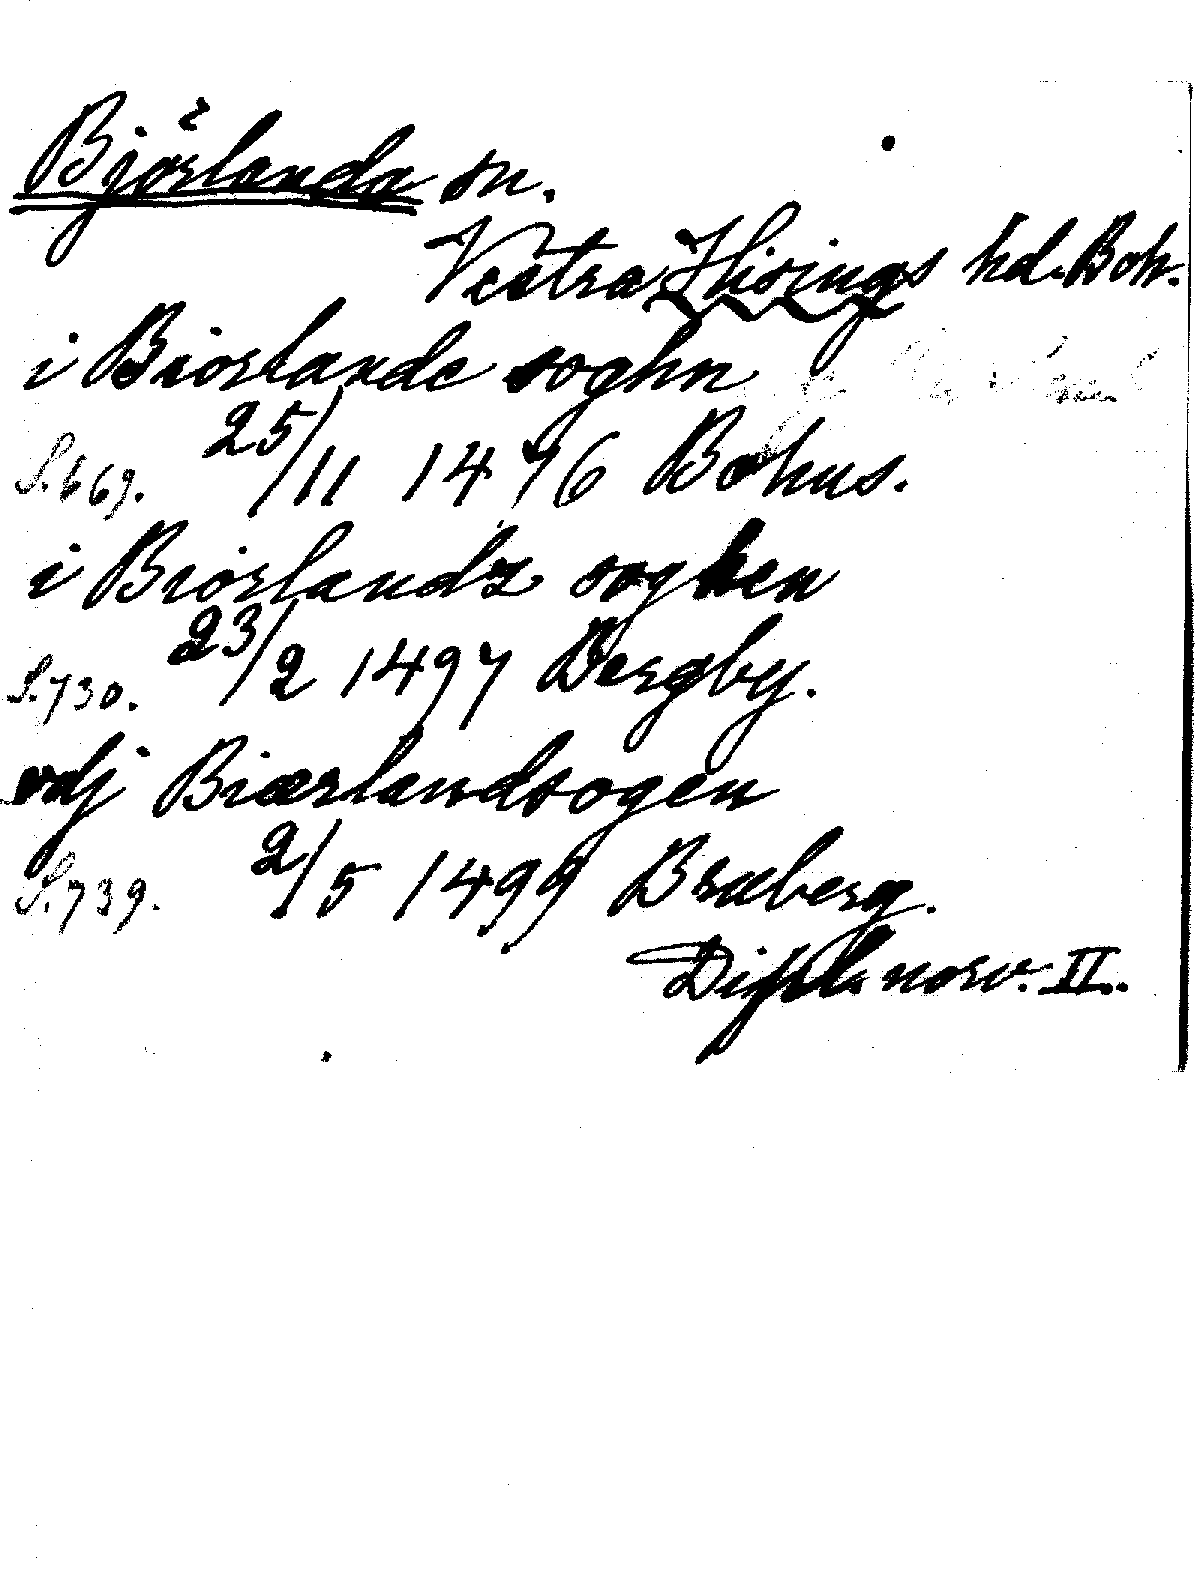 Björlanda sn.
Vestra Hisings hd. Boh.
i Biorlande soghn
S. 669. 25/11 1476 Bohus.
i Biorlandz soghen
S. 730. 23/2 1497 Bergby.
vdj Biærlandsogen
S. 739. 2/5 1499 Braberg.
Dipl. norv. II.